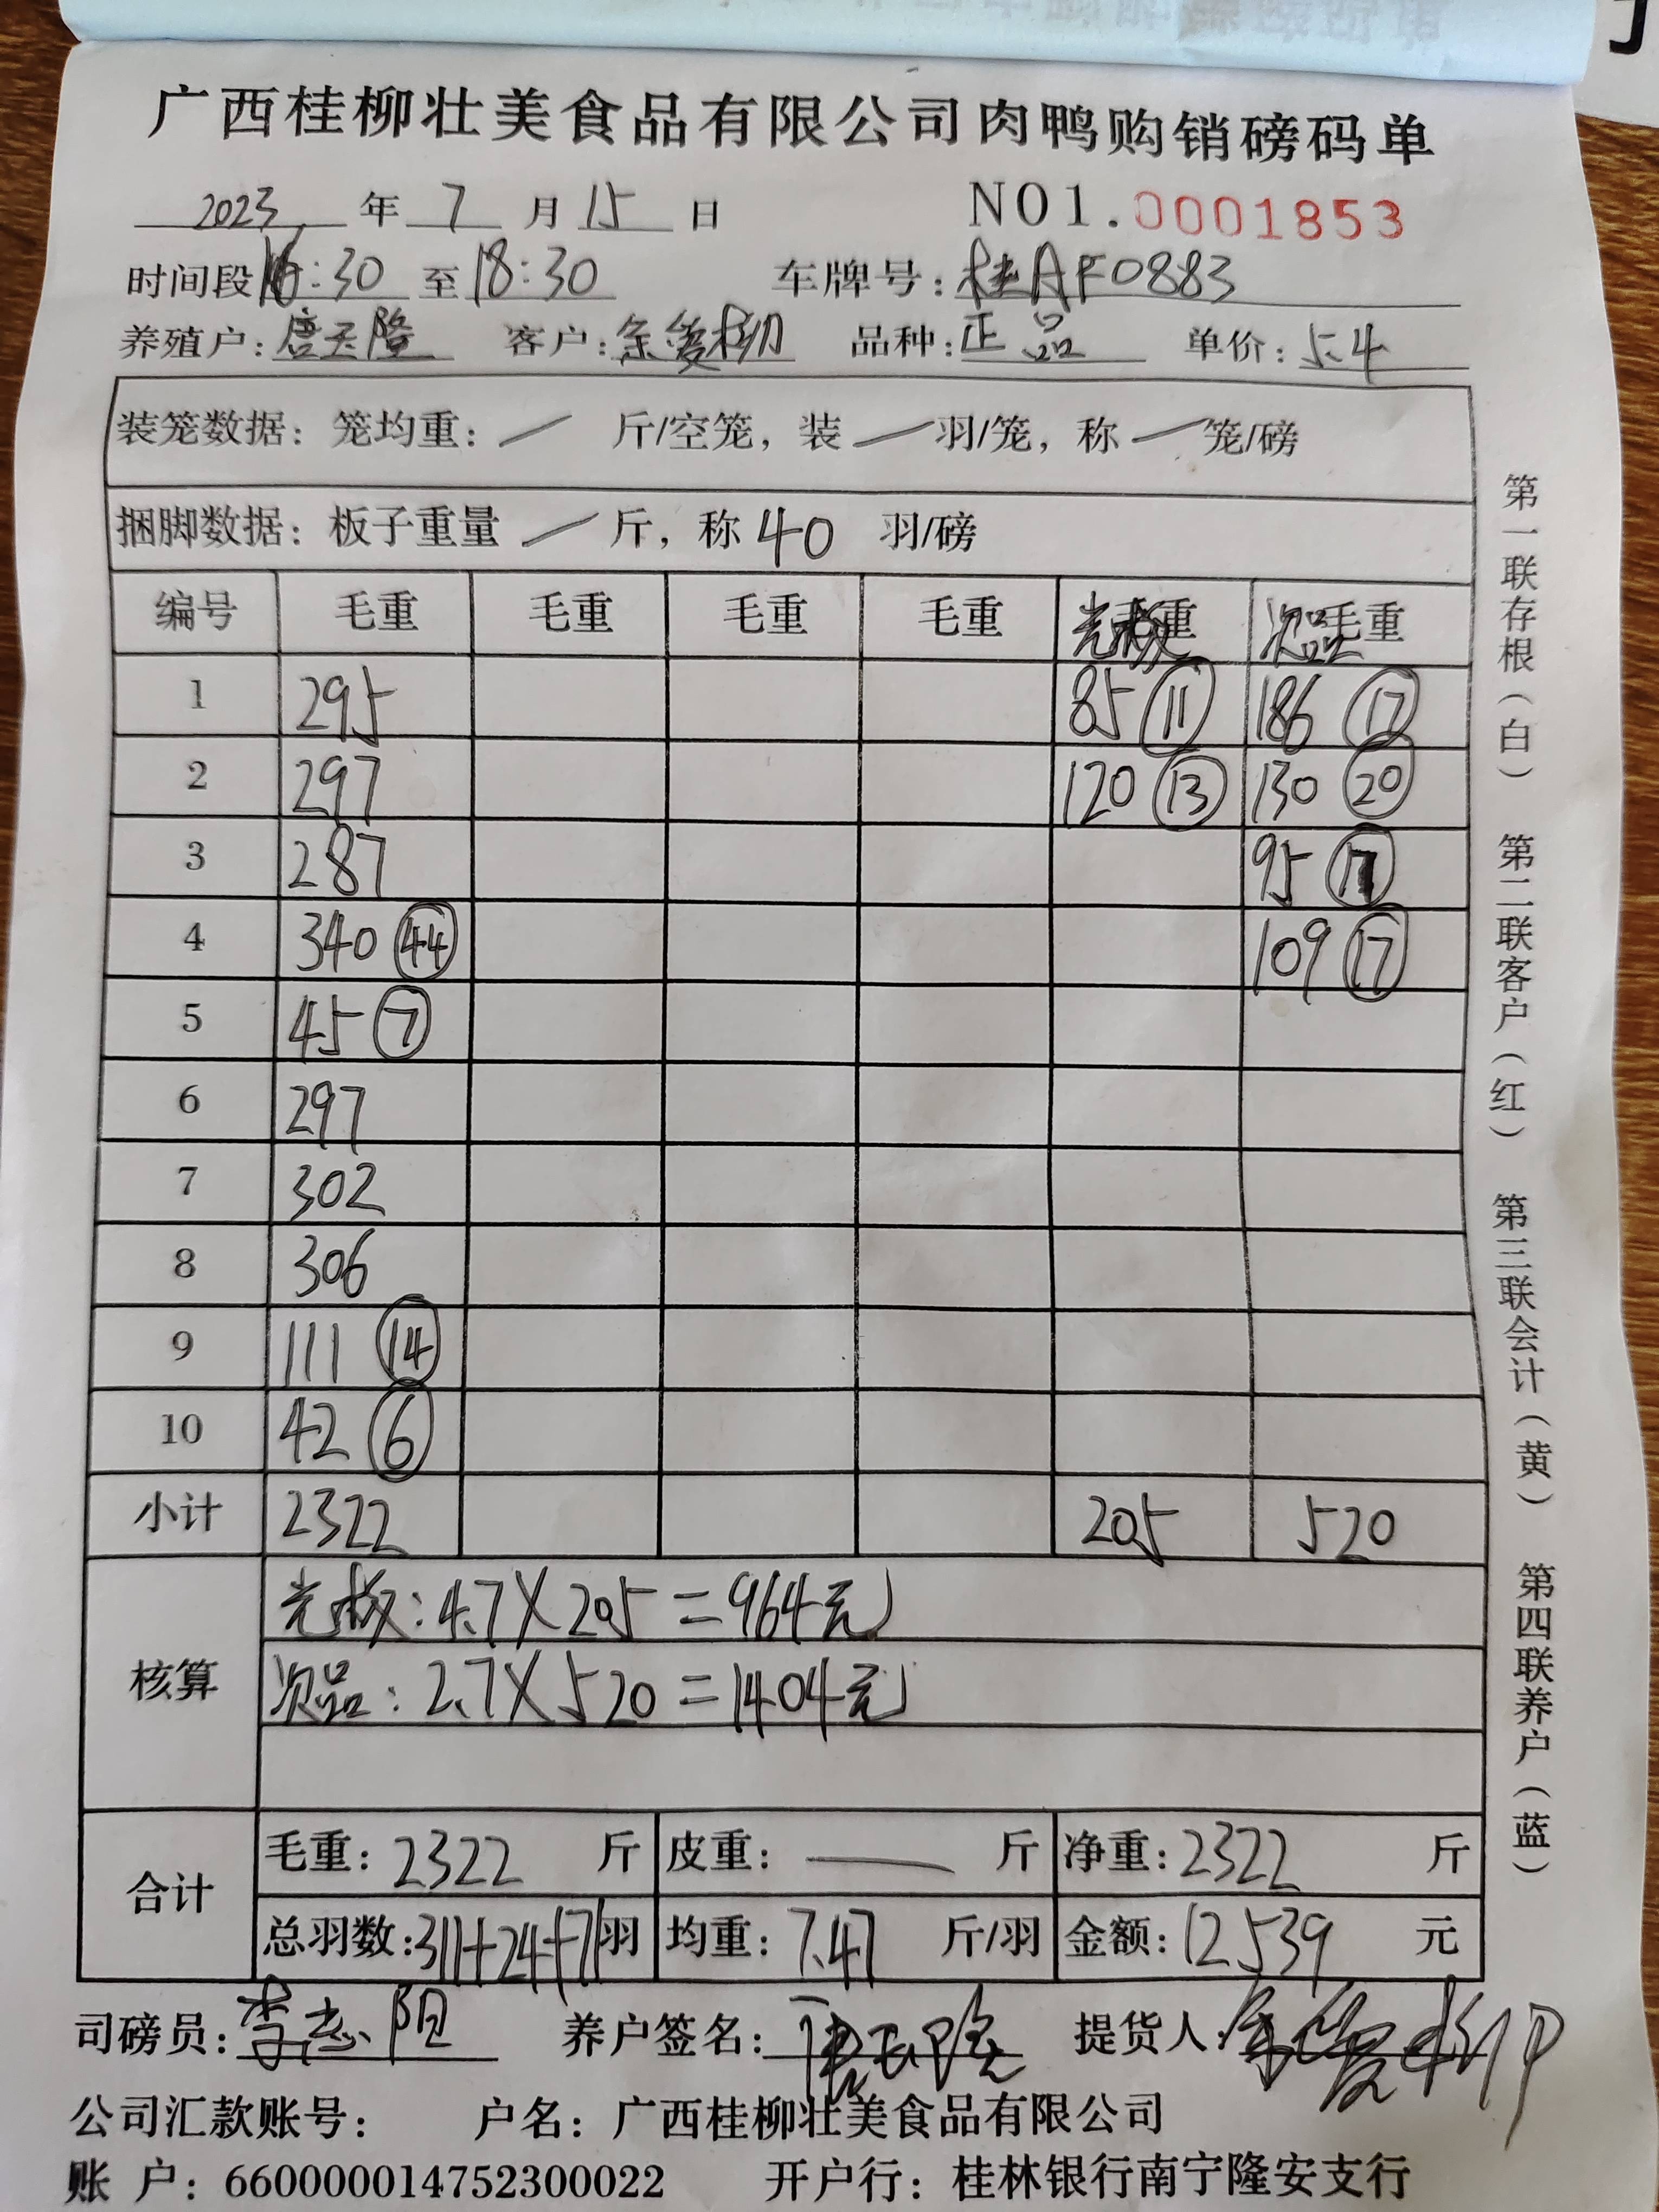 广西桂柳壮美食品有限公司肉鸭购销磅码单
2023 年 7 月 15 日 NO1.0001853
时间段 16:30 至 18:30 车牌号：桂AF0883
养殖户：唐玉隆 客户：余爱柳 品种：正品 单价：5.4
装笼数据：笼均重：／ 斤/空笼，装 ／ 羽/笼，称 ／ 笼/磅
捆脚数据：板子重量 ／ 斤，称 40 羽/磅
编号 毛重 毛重 毛重 毛重 光板 毛重 次品 毛重
1 295 85 ⑪ 186 ⑰
2 297 120 ⑬ 130 ⑳
3 287 95 ⑰
4 340 ㊹ 109 ⑰
5 45 ⑦
6 297
7 302
8 306
9 111 ⑭
10 42 ⑥
小计 2322 205 520
核算
光板：4.7×205=964元
次品：2.7×520=1404元
合计
毛重：2322 斤 皮重：— 斤 净重：2322 斤
总羽数：311+24+71羽 均重：7.47 斤/羽 金额：12539 元
司磅员：李志阳 养户签名：唐玉隆 提货人：余爱柳
公司汇款账号： 户名：广西桂柳壮美食品有限公司
账 户：660000014752300022 开户行：桂林银行南宁隆安支行
第一联存根（白） 第二联客户（红） 第三联会计（黄） 第四联养户（蓝）